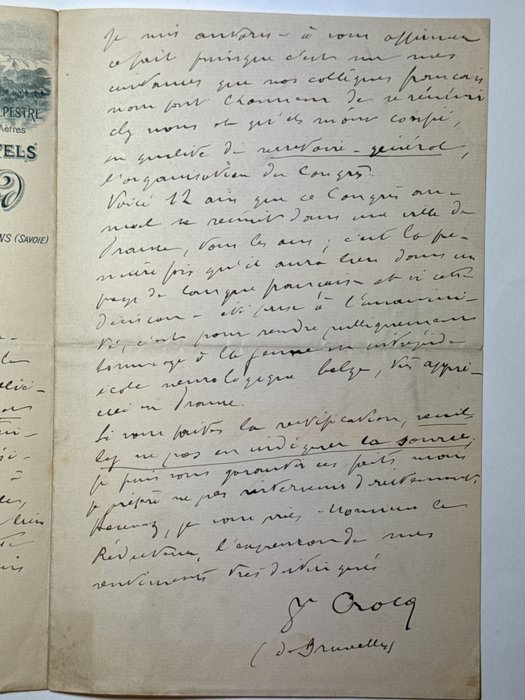 PESTRE
TELS
NS (SAVOIE)
Je suis autorisé à vous affirmer
ce fait puisque c'est sur mes
instances que nos collègues français
nous font l'honneur de se réunir
chez nous et qu'ils m'ont confié,
en qualité de secrétaire-général,
l'organisation du Congrès.
Voici 12 ans que ce Congrès an-
nuel se réunit dans une ville de
France, tous les ans ; c'est la pre-
mière fois qu'il aura lieu dans un
pays de langue française et si cette
décision a été prise à l'unanimi-
té, c'est pour rendre publiquement
hommage à la jeune et
école neurologique belge, très appré-
ciée en France.
Si vous faites la rectification, veuil-
lez ne pas en indiquer la source.
Je puis vous garantir ces faits, mais
je préfère ne pas intervenir directement.
Agréez, je vous prie, Monsieur le
Rédacteur, l'expression de mes
sentiments très distingués
Jn Crocq
(de Bruxelles)